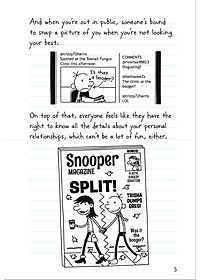 And when you're out in public, someone's bound
to snap a picture of you when you're not looking
your best.
@rizzy72harris
Spotted at the Toenail Fungus
Clinic this afternoon
Is that
a booger?
COMMENTS
Disgusting!
The clinic or the
booger?
@rizzy72harris
LOL
On top of that, everyone feels like they have the
right to know all the details about your personal
relationships, which can't be a lot of fun, either.
Snooper
MAGAZINE
BONUS
PLASTIC
SURGERY
DISASTERS
SPLIT!
TRISHA
DUMPS
GREG!
Was it
the
booger?
3